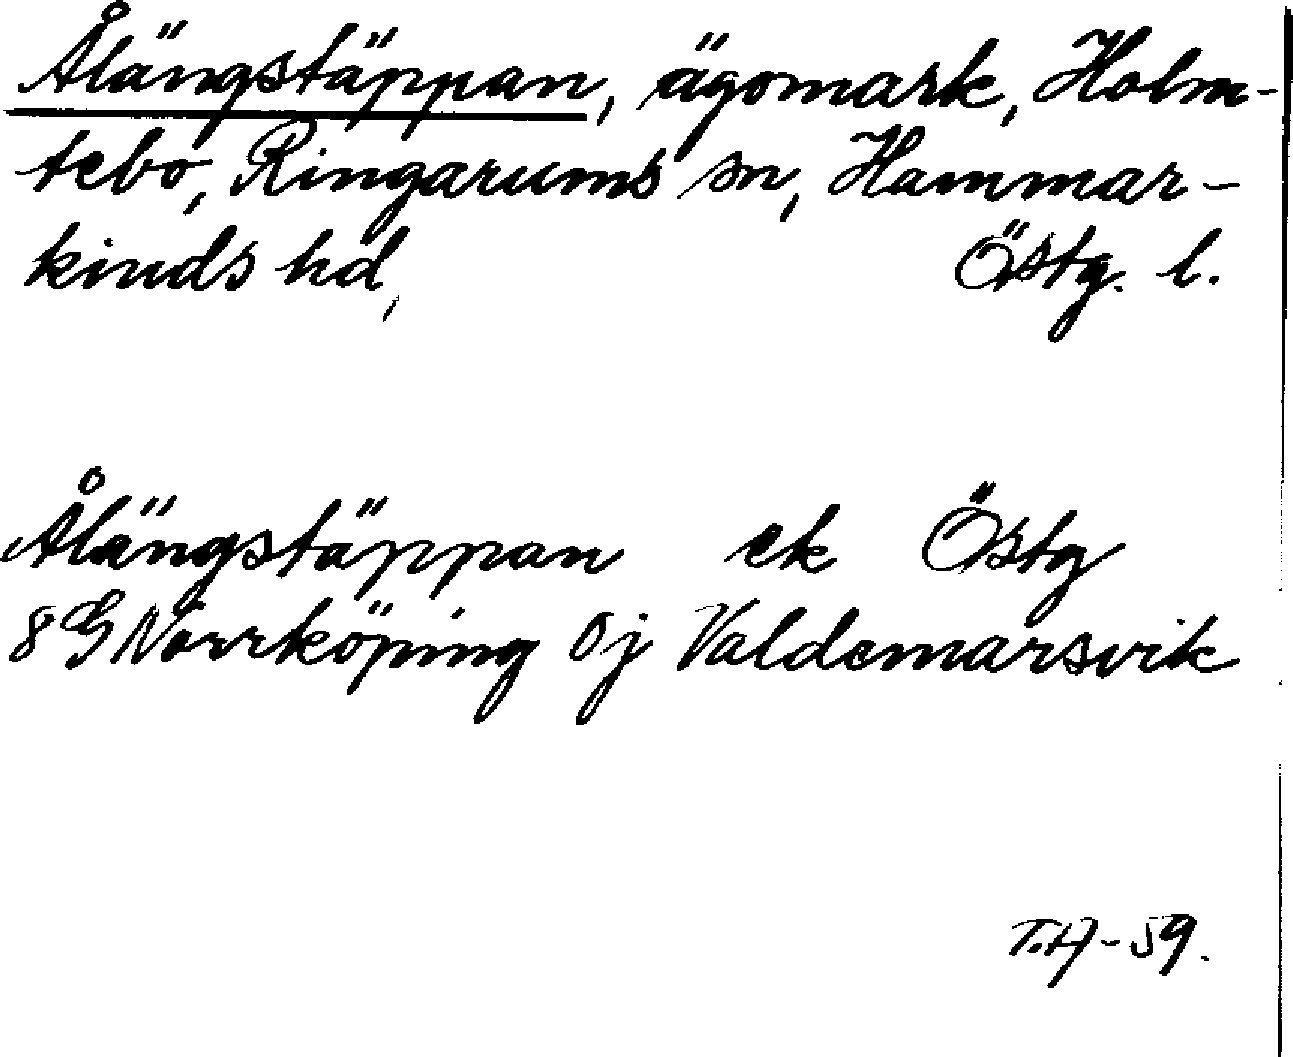 Ålängstäppan, ägomark, Holm-
tebo, Ringarums sn, Hammar-
kinds hd, Östg. l.
Ålängstäppan ek Östg
8 G Norrköping 0j Valdemarsvik
T.H-59.